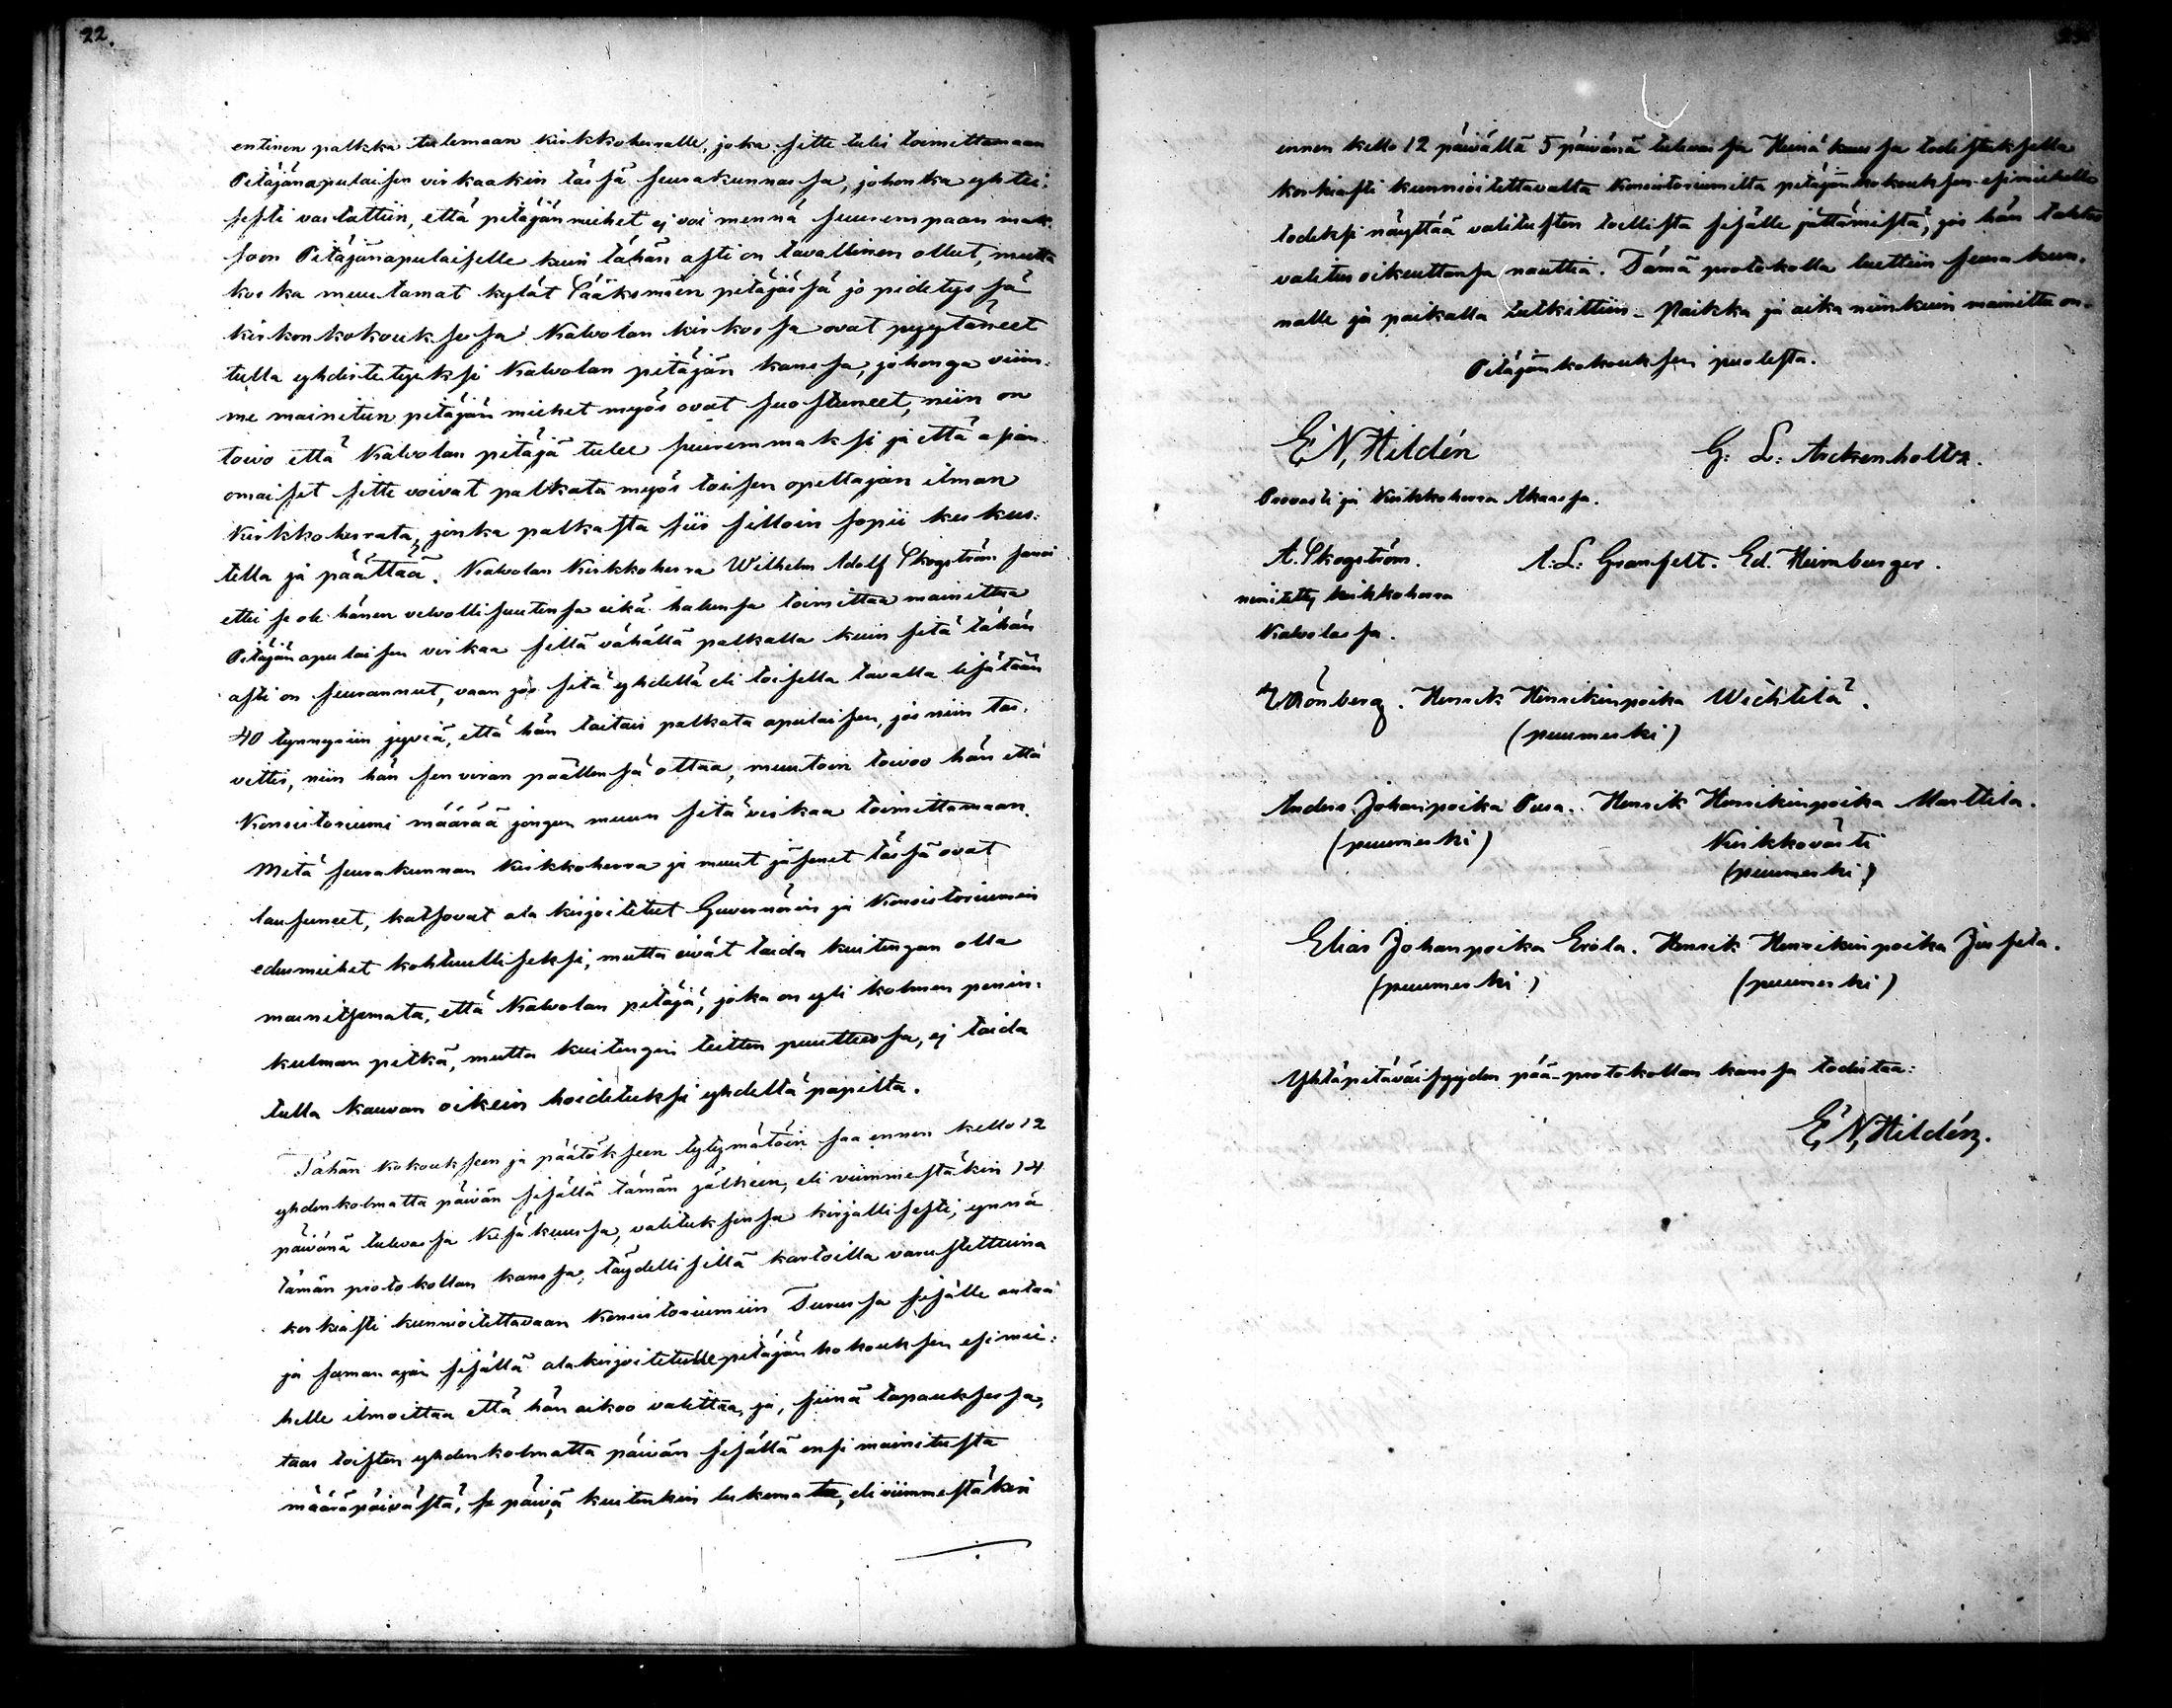 22.
entinen palkka tulemaan kirkkoherralle, joka sitte tulis toimittamaan
Pitäjänapulaisen virkaakin tässä seurakunnassa, johonka yhtei-
sesti vastattiin, että pitäjän miehet ej voi mennä suurempaan mak-
soon Pitäjänapulaiselle kuin tähän asti on tavallinen ollut, mutta
koska muutamat kylät Sääksmäen pitäjässä jo pidetyssä
kirkonkokouksessa Kalvolan kirkossa ovat pyytäneet
tulla yhdistetyksi Kalvolan pitäjän kanssa, johonga viim-
me mainitun pitäjän miehet myös ovat suostuneet, niin on
toivo että Kalvolan pitäjä tulee suuremmaksi ja että asian-
omaiset sitte voivat palkata myös toisen opettajan ilman
Kirkkoherrata, jonka palkasta siis silloin sopii keskus-
tella ja päättää. Kalvolan Kirkkoherra Wilhelm Adolf Skogström sanoi
ettei se ole hänen velvollisuutensa eikä halunsa toimittaa mainittua
Pitäjän apulaisen virkaa sillä vähällä palkalla kuin sitä tähän
asti on seurannut, vaan jos sitä yhdellä eli toisella tavalla lisätään
40 tynnyriin jyviä, että hän taitais palkata apulaisen, jos niin tar-
vittis, niin hän sen viran päällensä ottaa, muutoin toivoo hän että
Konsistoriumi määrää jongun muun sitä virkaa toimittamaan.
Mitä seurakunnan Kirkkoherra ja muut jäsenet tässä ovat
lausuneet, katsovat ala kirjoitetut Guvernörin ja Konsistoriumin
edusmiehet kohtuulliseksi, mutta eivät taida kuitengan olla
mainitsemata, että Kalvolan pitäjä, joka on yli kolmen penin-
kulman pitkä, mutta kuitengin teitten puutteessa, ej taida
tulla kauvan oikein hoidetuksi yhdeltä papilta.
Tähän kokoukseen ja päätökseen tytymätöin saa ennen kello 12
yhdenkolmatta päivän sisällä tämän jälkeen, eli viimmestäkin 14
päivänä tulevassa Kesäkuussa, valituksensa kirjallisesti, ynnä
tämän protokollan kanssa, täydellisillä kartoilla varustettuina
korkiasti kunnioitettavaan Konsistoriumiin Turussa sisälle antaa
ja saman ajan sisällä alakirjoitetulle pitäjänkokouksen esimie-
helle ilmoittaa että hän aikoo valittaa, ja, siinä tapauksessa,
taas toisten yhdenkolmatta päivän sisällä ensi mainitusta
määräpäivästä, se päivä kuitenkin lukemata, eli viimmestäkin
ennen kello 12 päivällä 5 päivänä tulevassa Heinä kuussa todistuksella
korkiasti kunnioitettavalta Konsistoriumilta pitäjänkokouksen esimiehelle
todeksi näyttää valitusten todellista sisälle jättämistä, jos hän tahtoo
valitus oikeuttansa nauttia. Tämä protokolla luettiin seura kun-
nalle ja paikalla tutkittiin. Paikka ja aika niinkuin mainittu on.
Pitäjänkokouksen puolesta.
E, N, Hildén G: L: Arckenholtz.
Provasti ja Kirkkoherra Akaassa.
A. Skogström. A: L: Granfelt. Ed. Heimburger.
nimitetty kirkkoherra
Kalvolassa.
Wrönberg. Henrik Henrikinpoika Wichtilä.
(puumerki)
Anders Johanpoika Pura. Henrik Henrikinpoika Marttila.
(puumerki) Kirkkovärti
(puumerki)
Elias Johanpoika Erola. Henrik Henrikinpoika Jusela.
(puumerki) (puumerki)
Yhtäpitäväisyyden pää-protokollan kanssa todistaa:
E, N, Hildén,